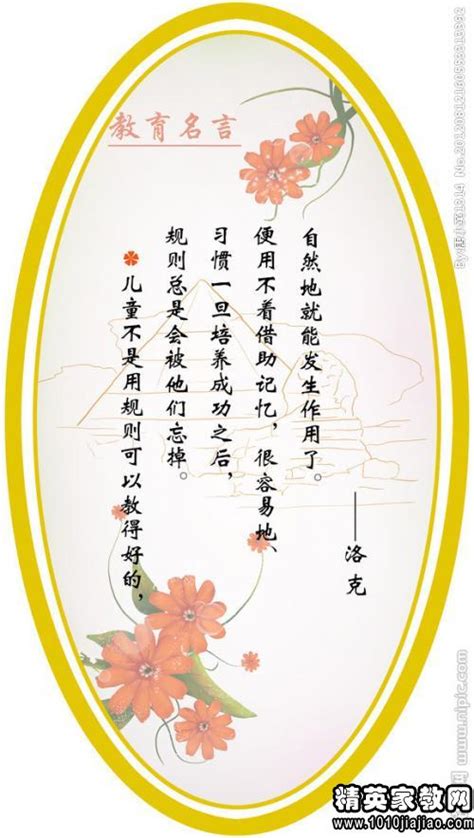 教育名言
儿童不是用规则可以教得好的，
规则总是会被他们忘掉。
习惯一旦培养成功之后，
便用不着借助记忆，很容易地、
自然地就能发生作用了。
——洛克
网 www.nipic.com
精英家教网
www.1010jiajiao.com